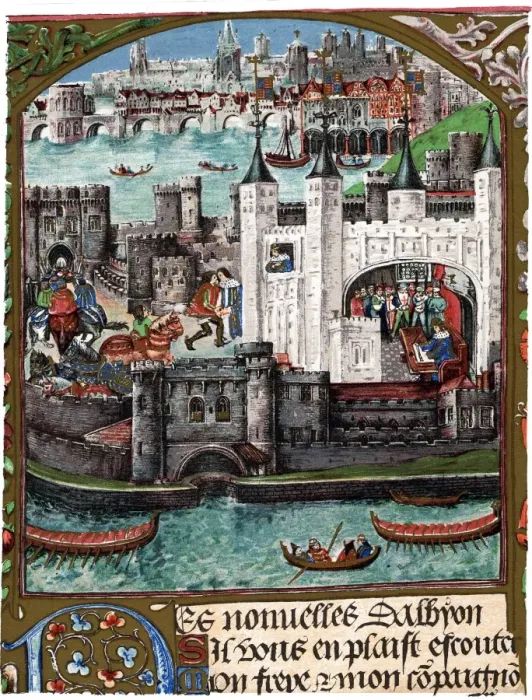 DEs nouuelles Dalbyon
SIl vous en plaist escoute
Mon frere ⁊ mon cõpaigno